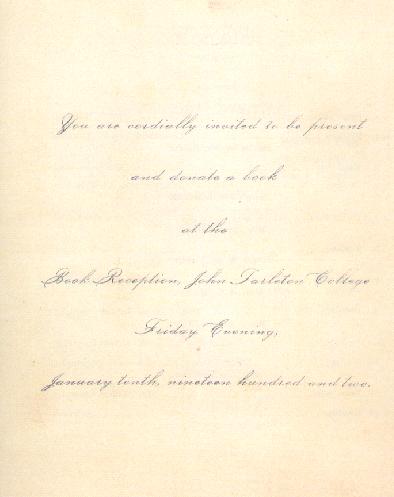 You are cordially invited to be present
and donate a book
at the
Book Reception, John Tarleton College
Friday Evening,
January tenth, nineteen hundred and two.